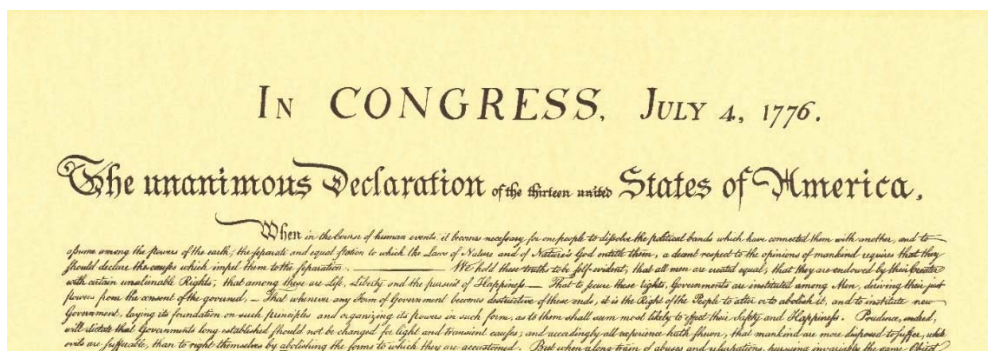 IN CONGRESS, JULY 4, 1776.
The unanimous Declaration of the thirteen united States of America,
When in the Course of human events it becomes necessary for one people to dissolve the political bands which have connected them with another, and to
assume among the powers of the earth, the separate and equal station to which the Laws of Nature and of Nature's God entitle them, a decent respect to the opinions of mankind requires that they
should declare the causes which impel them to the separation. ——— We hold these truths to be self-evident, that all men are created equal, that they are endowed by their Creator
with certain unalienable Rights, that among these are Life, Liberty and the pursuit of Happiness.— That to secure these rights, Governments are instituted among Men, deriving their just
powers from the consent of the governed, — That whenever any Form of Government becomes destructive of these ends, it is the Right of the People to alter or to abolish it, and to institute new
Government, laying its foundation on such principles and organizing its powers in such form, as to them shall seem most likely to effect their Safety and Happiness. Prudence, indeed,
will dictate that Governments long established should not be changed for light and transient causes; and accordingly all experience hath shewn, that mankind are more disposed to suffer, while
evils are sufferable, than to right themselves by abolishing the forms to which they are accustomed. But when a long train of abuses and usurpations, pursuing invariably the same Object